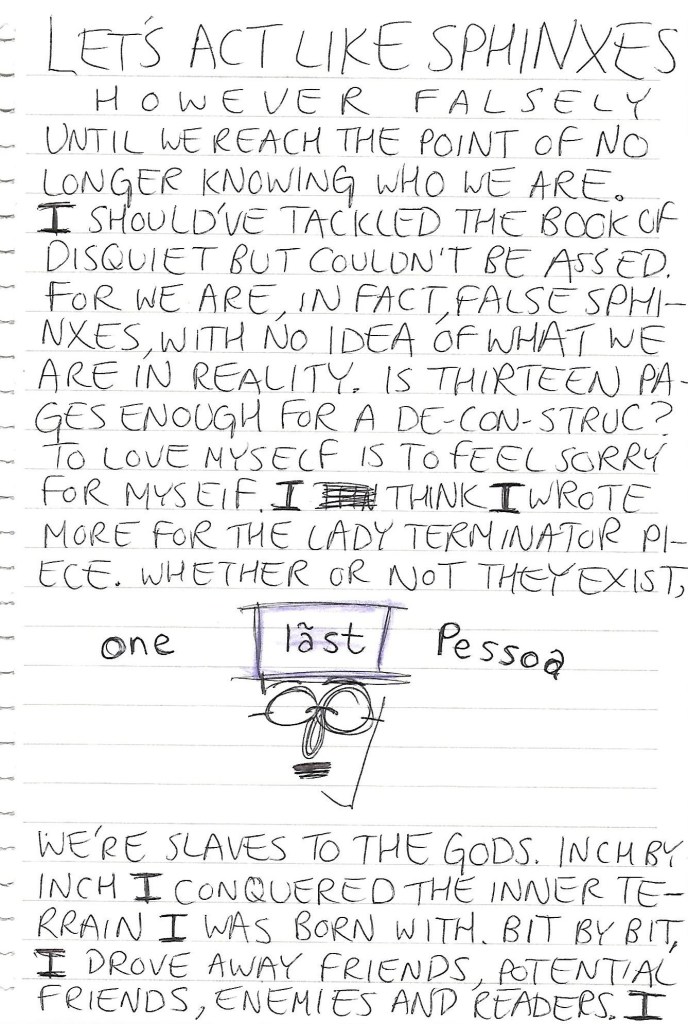 LET'S ACT LIKE SPHINXES
HOWEVER FALSELY
UNTIL WE REACH THE POINT OF NO
LONGER KNOWING WHO WE ARE.
I SHOULD'VE TACKLED THE BOOK OF
DISQUIET BUT COULDN'T BE ASSED.
FOR WE ARE, IN FACT, FALSE SPHI-
NXES, WITH NO IDEA OF WHAT WE
ARE IN REALITY. IS THIRTEEN PA-
GES ENOUGH FOR A DE-CON-STRUC?
TO LOVE MYSELF IS TO FEEL SORRY
FOR MYSELF. I THINK I WROTE
MORE FOR THE LADY TERMINATOR PI-
ECE. WHETHER OR NOT THEY EXIST,
one lãst Pessoa
WE'RE SLAVES TO THE GODS. INCH BY
INCH I CONQUERED THE INNER TE-
RRAIN I WAS BORN WITH. BIT BY BIT,
I DROVE AWAY FRIENDS, POTENTIAL
FRIENDS, ENEMIES AND READERS. I